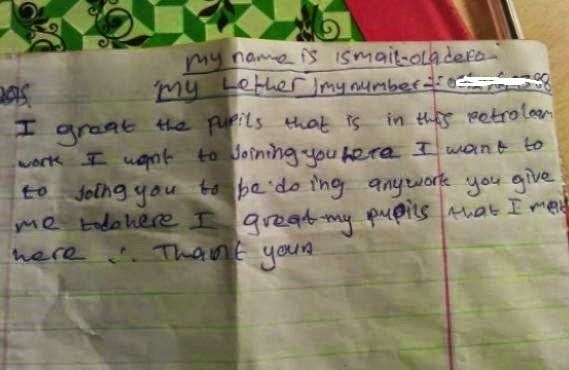 my name is ismail-oladepo
my Letter my number-:
I greaat the pupils that is in this petroleam
work I wqnt to Joining you here I want to
to joing you to be do ing any work you give
me todohere I great-my pupils that I meat
here ∴ Thant youn